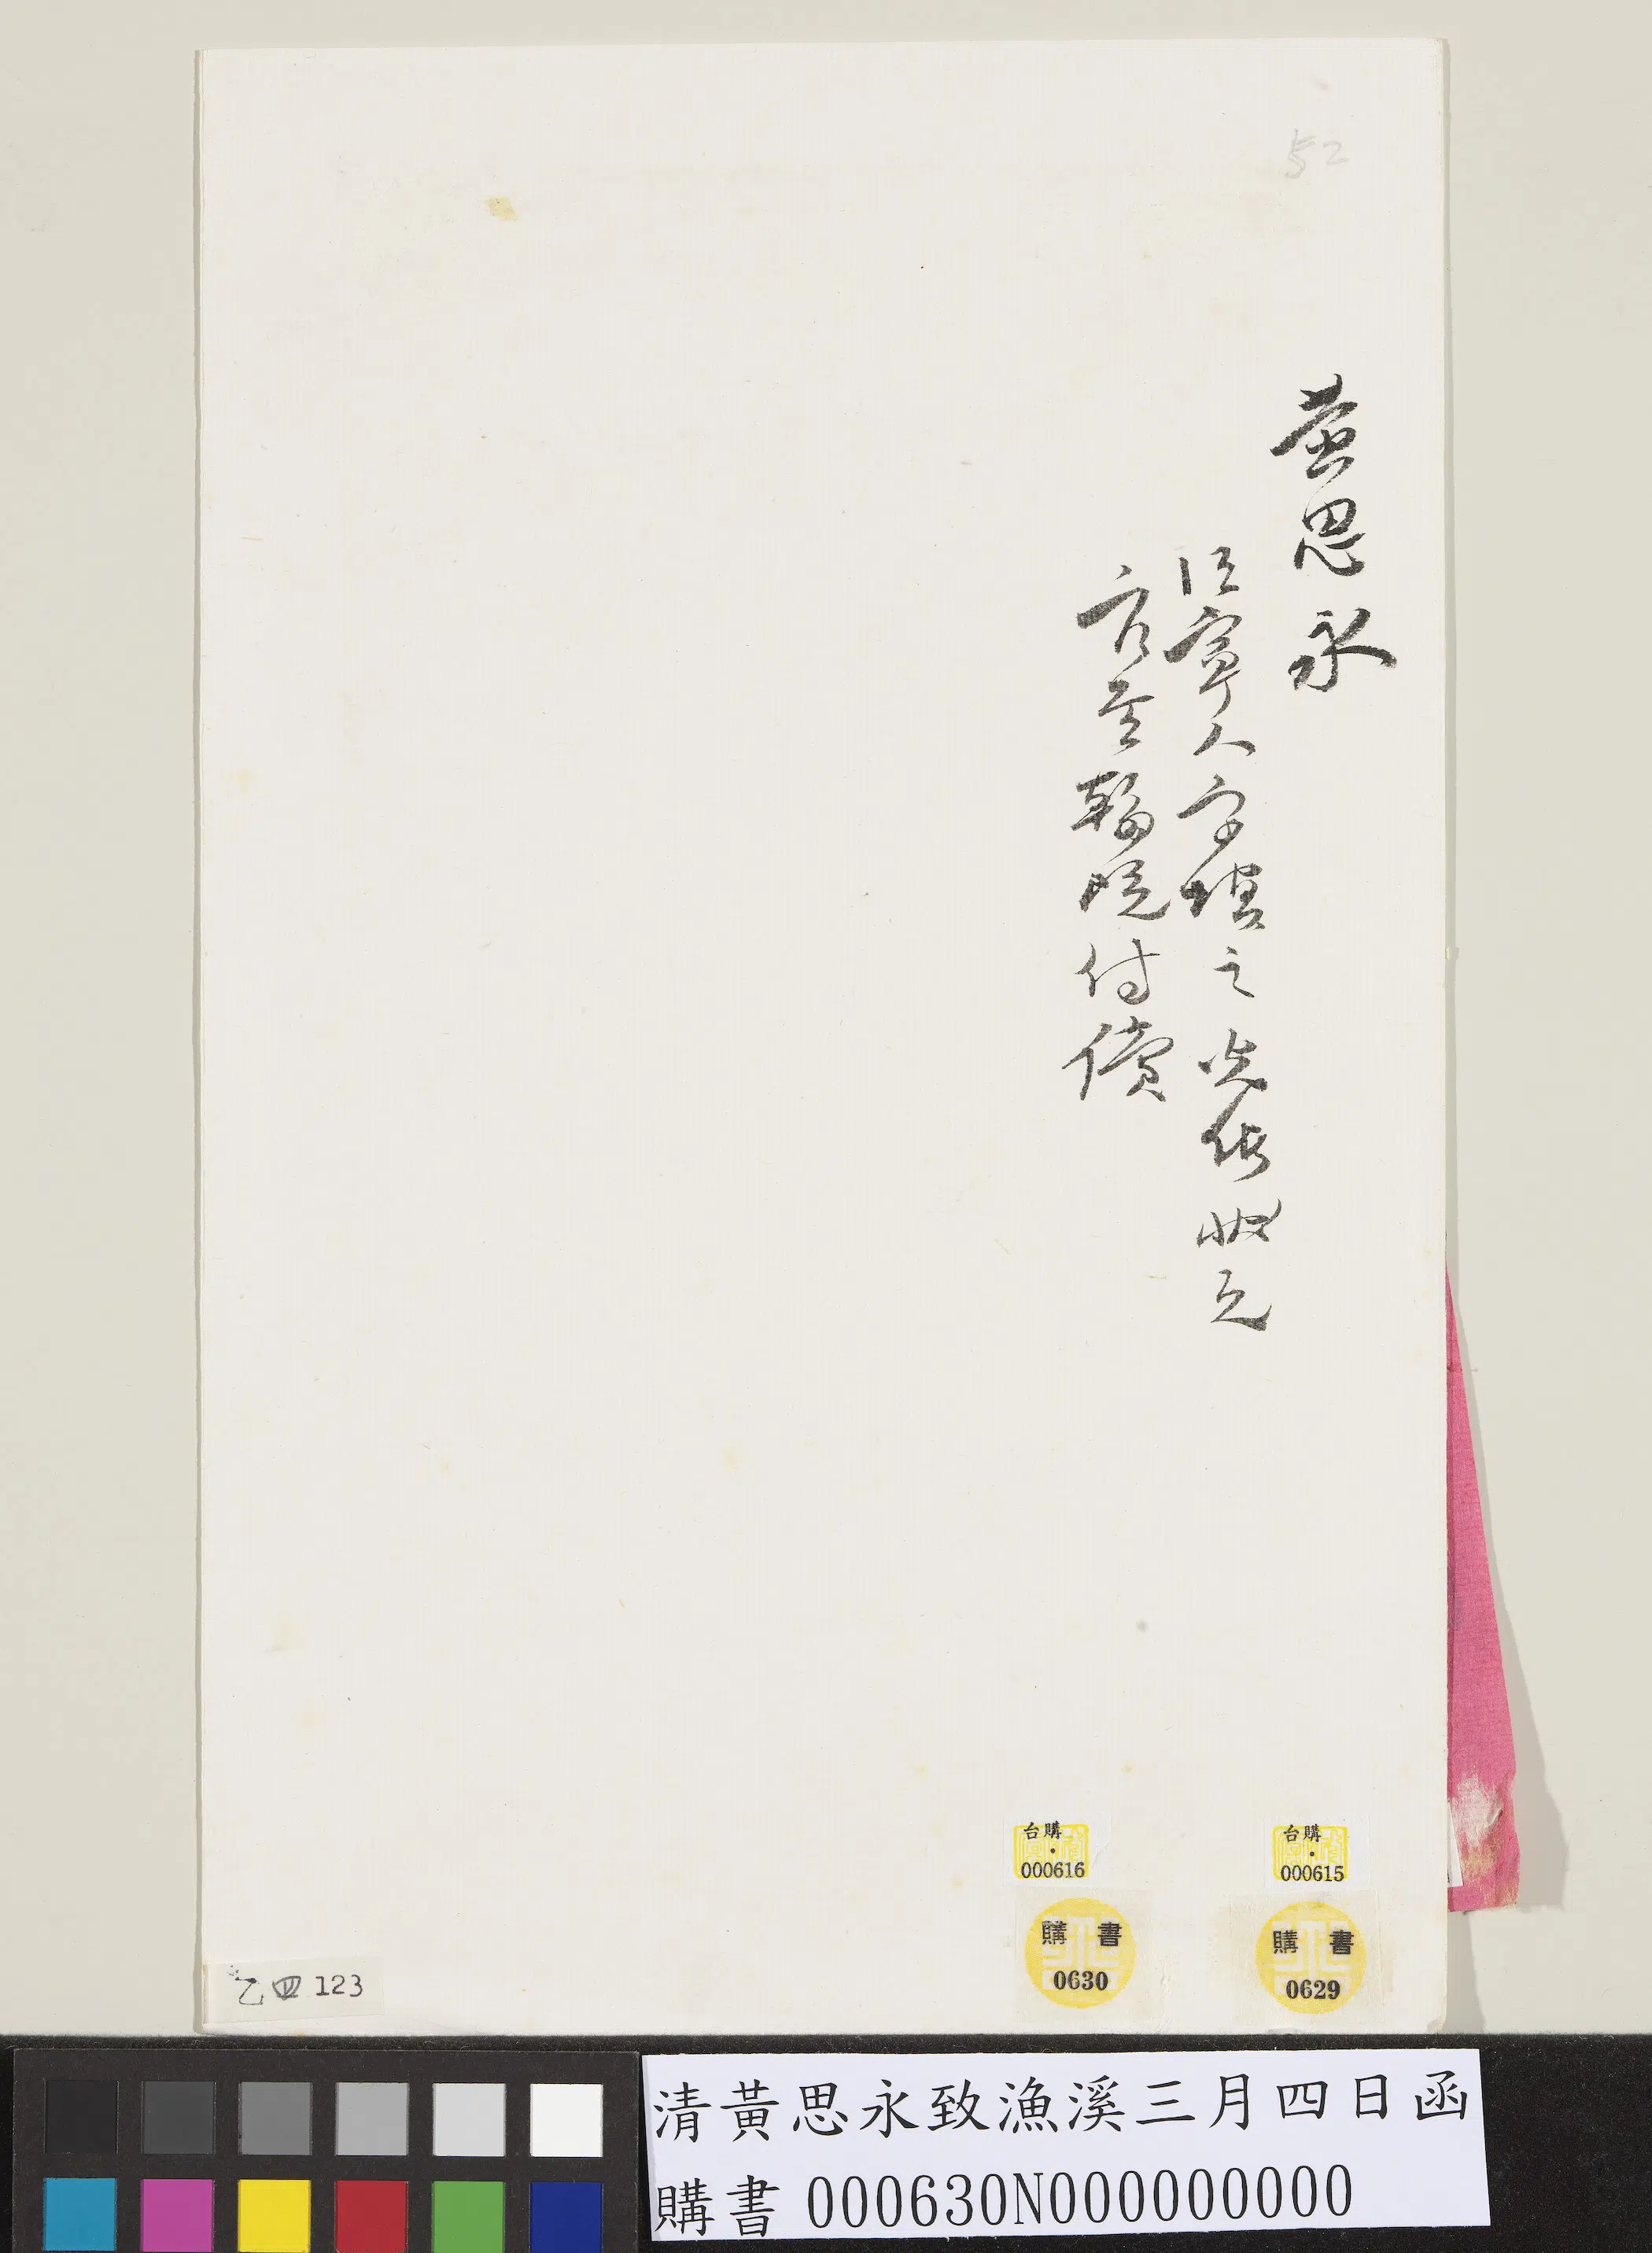 52
黃思永
江寧人字慎之光緒狀元
官至翰院侍讀
台購
000615
台購
000616
購書
0629
購書
0630
乙四123
清黃思永致漁溪三月四日函
購書000630N000000000